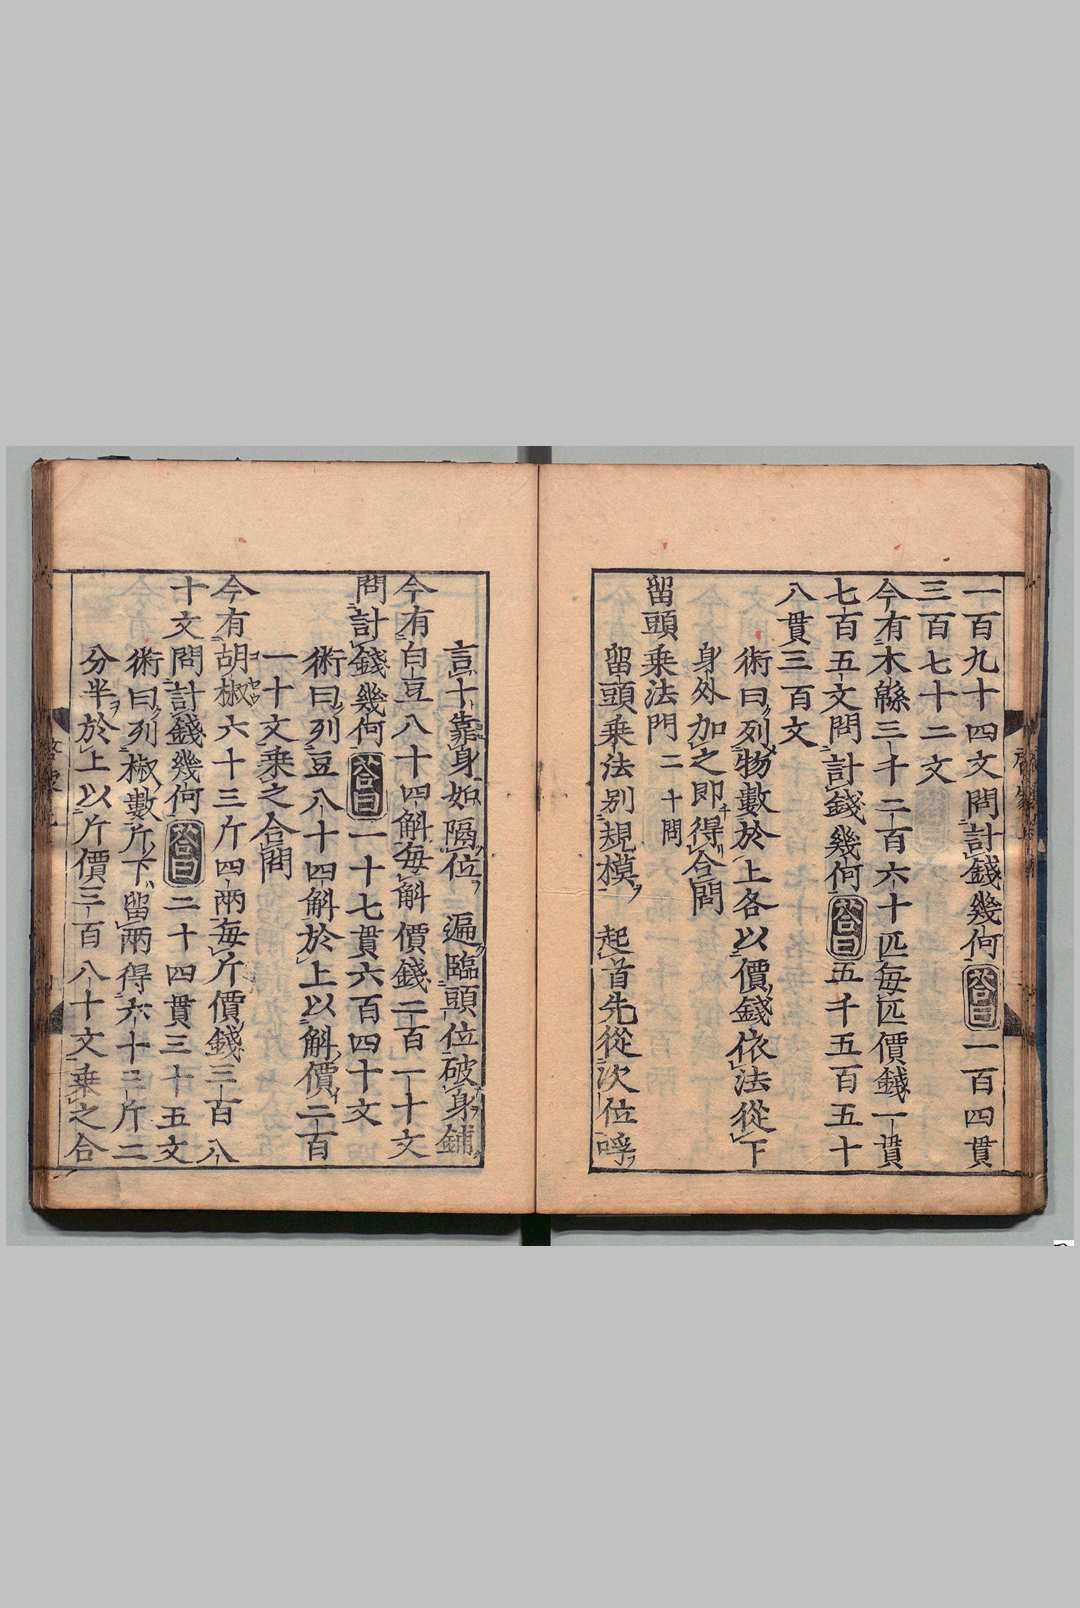 一百九十四文問計錢幾何答曰一百四貫
三百七十二文
今有木緜三千二百六十匹每匹價錢一貫
七百五文問計錢幾何答曰五千五百五十
八貫三百文
術曰列物數於上各以價錢依法從下
身外加之即得合問
留頭乘法門二十問
留頭乘法別規模 起首先從次位呼
言十靠身如隔位 遍臨頭位破身鋪
今有白豆八十四斛每斛價錢二百一十文
問計錢幾何答曰一十七貫六百四十文
術曰列豆八十四斛於上以斛價二百
一十文乘之合問
今有胡椒六十三斤四兩每斤價錢三百八
十文問計錢幾何答曰二十四貫三十五文
術曰列椒數斤下留兩得六十三斤二
分半於上以斤價三百八十文乘之合